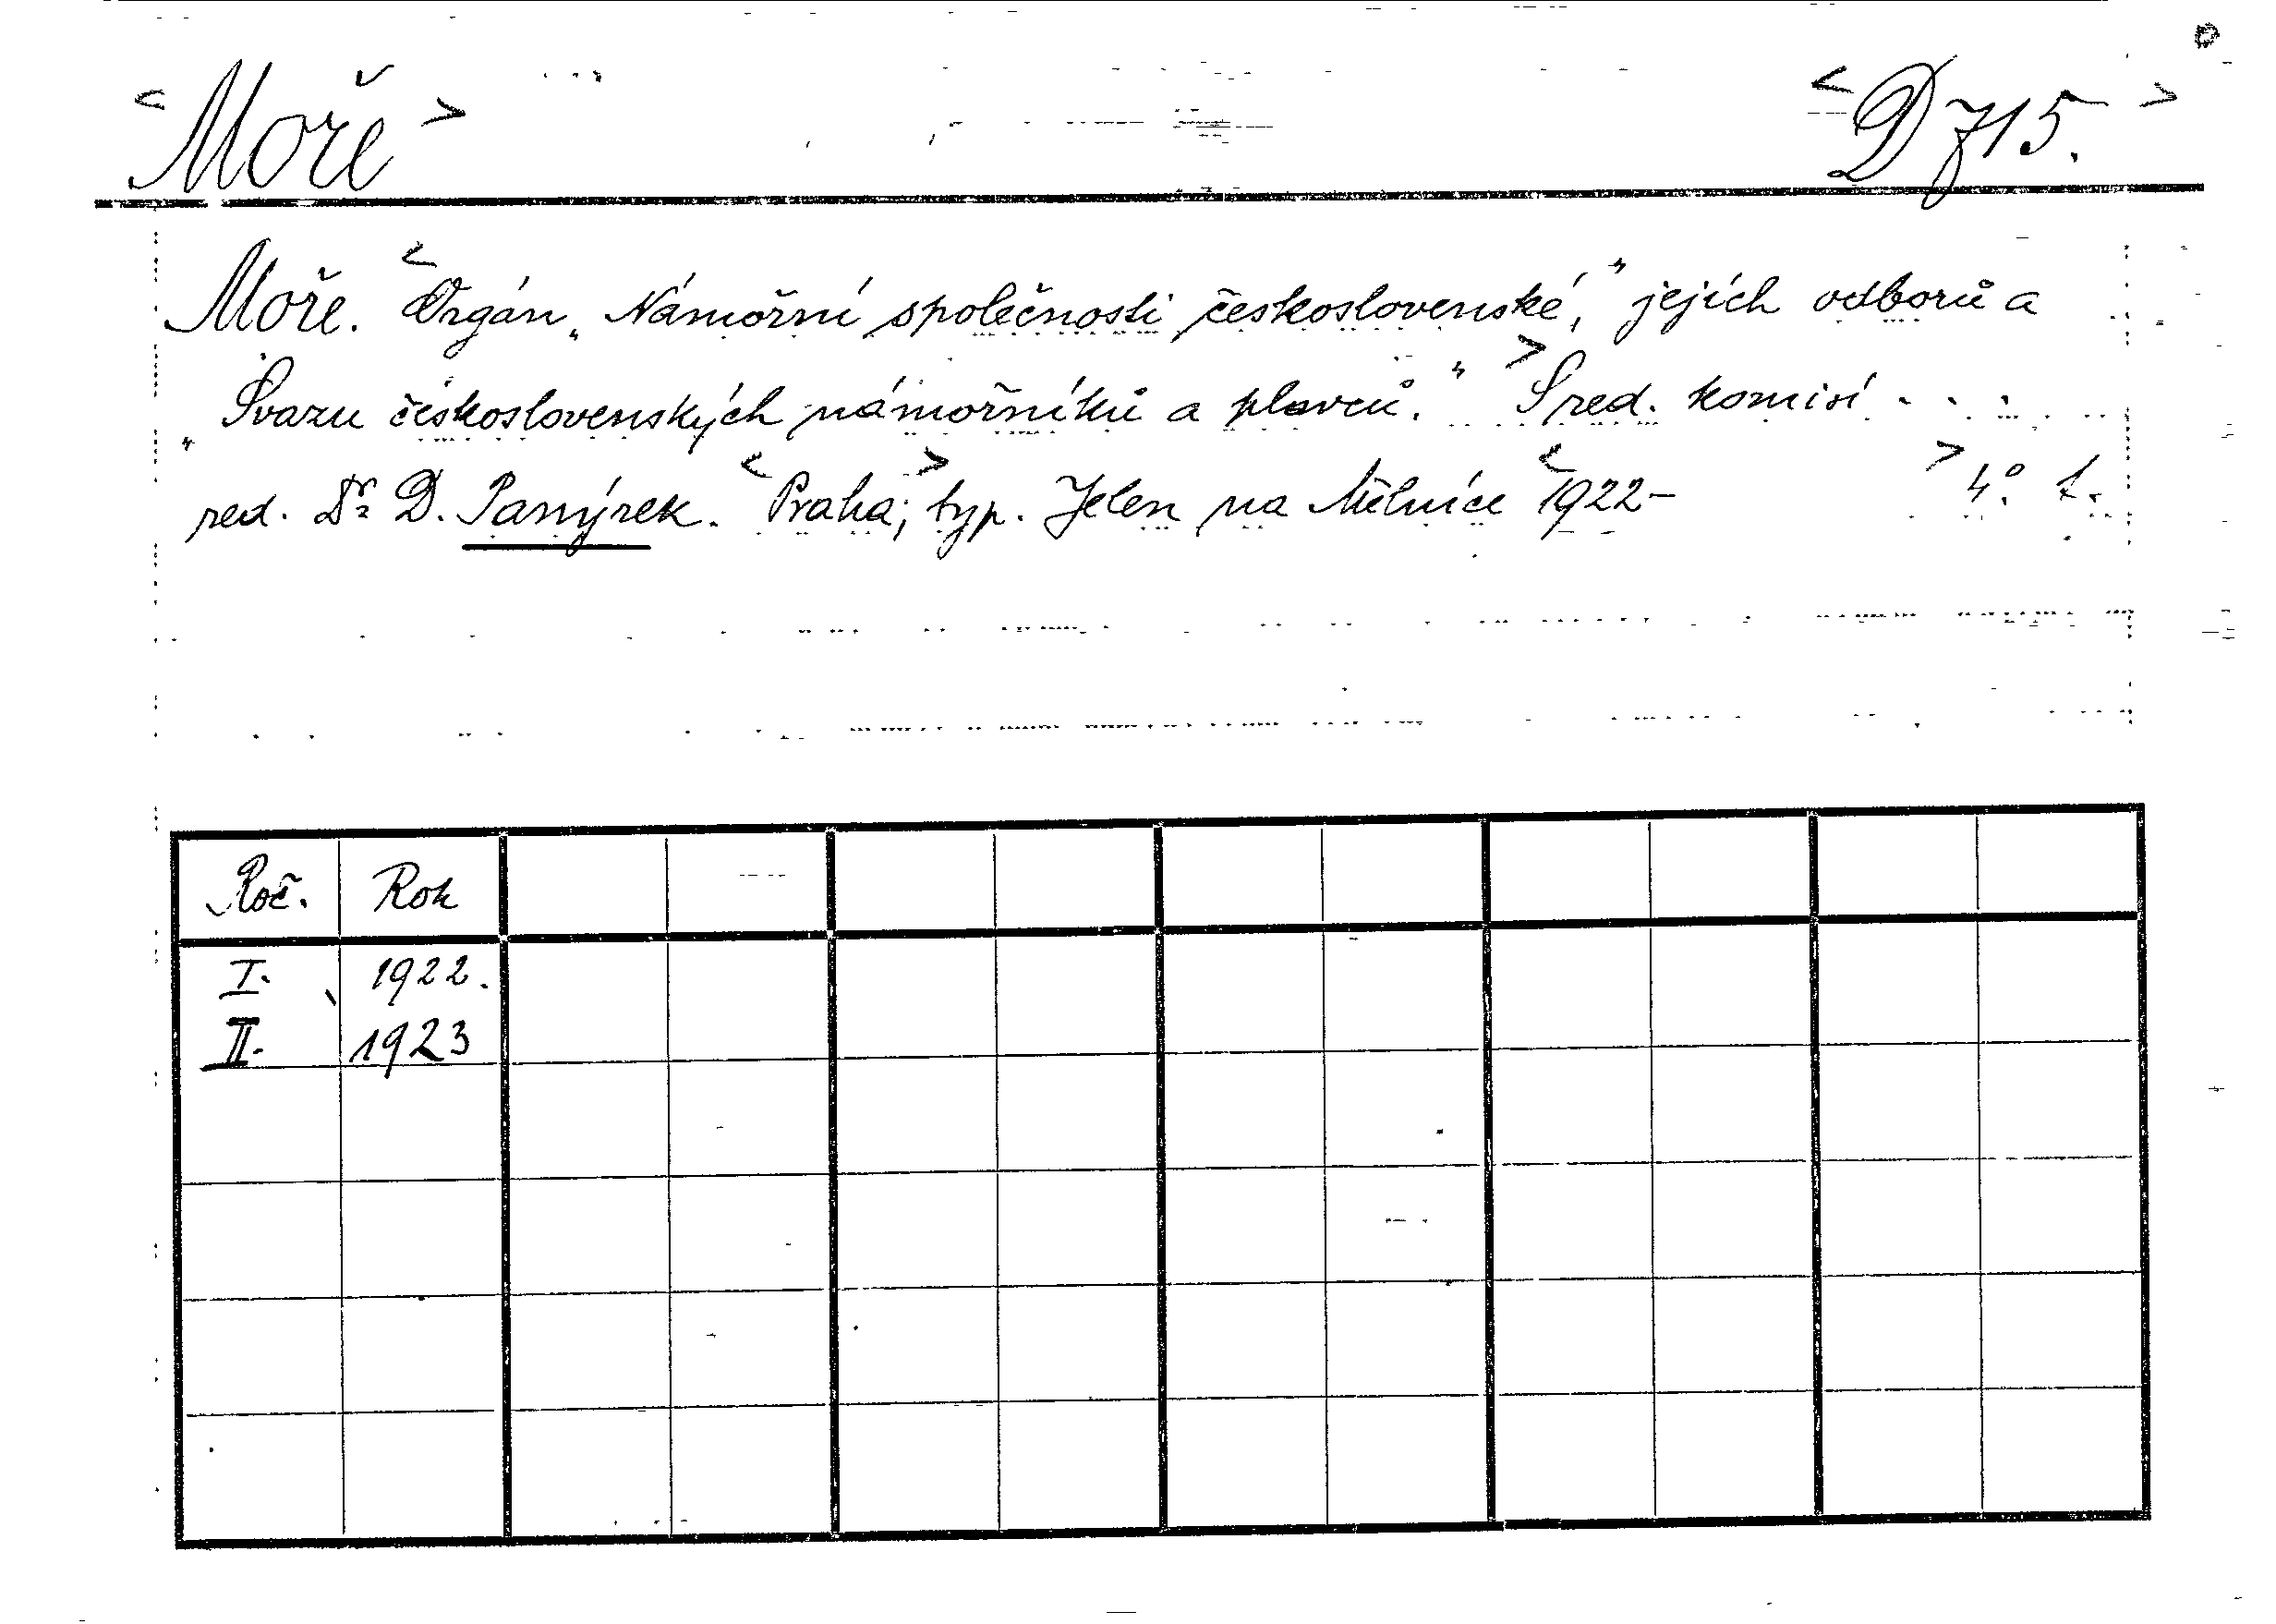 <Moře> <D 715.>
Moře. <Orgán „Námořní společnosti československé," jejích odborů a
„Svazu československých námořníků a plavců." > S red. komisí . . .
red. Dr D. Panýrek. <Praha;> typ. Jelen na Mělníce <1922– > 4°. t.
Roč. Rok
I. 1922.
II. 1923